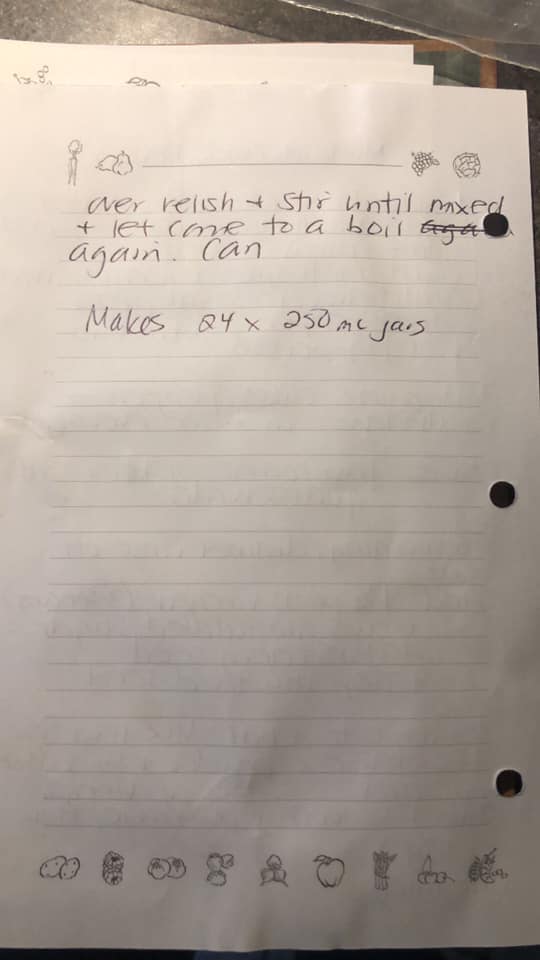 over relish + stir until mixed
+ let come to a boil
again. Can
Makes 24 x 250 mL jars